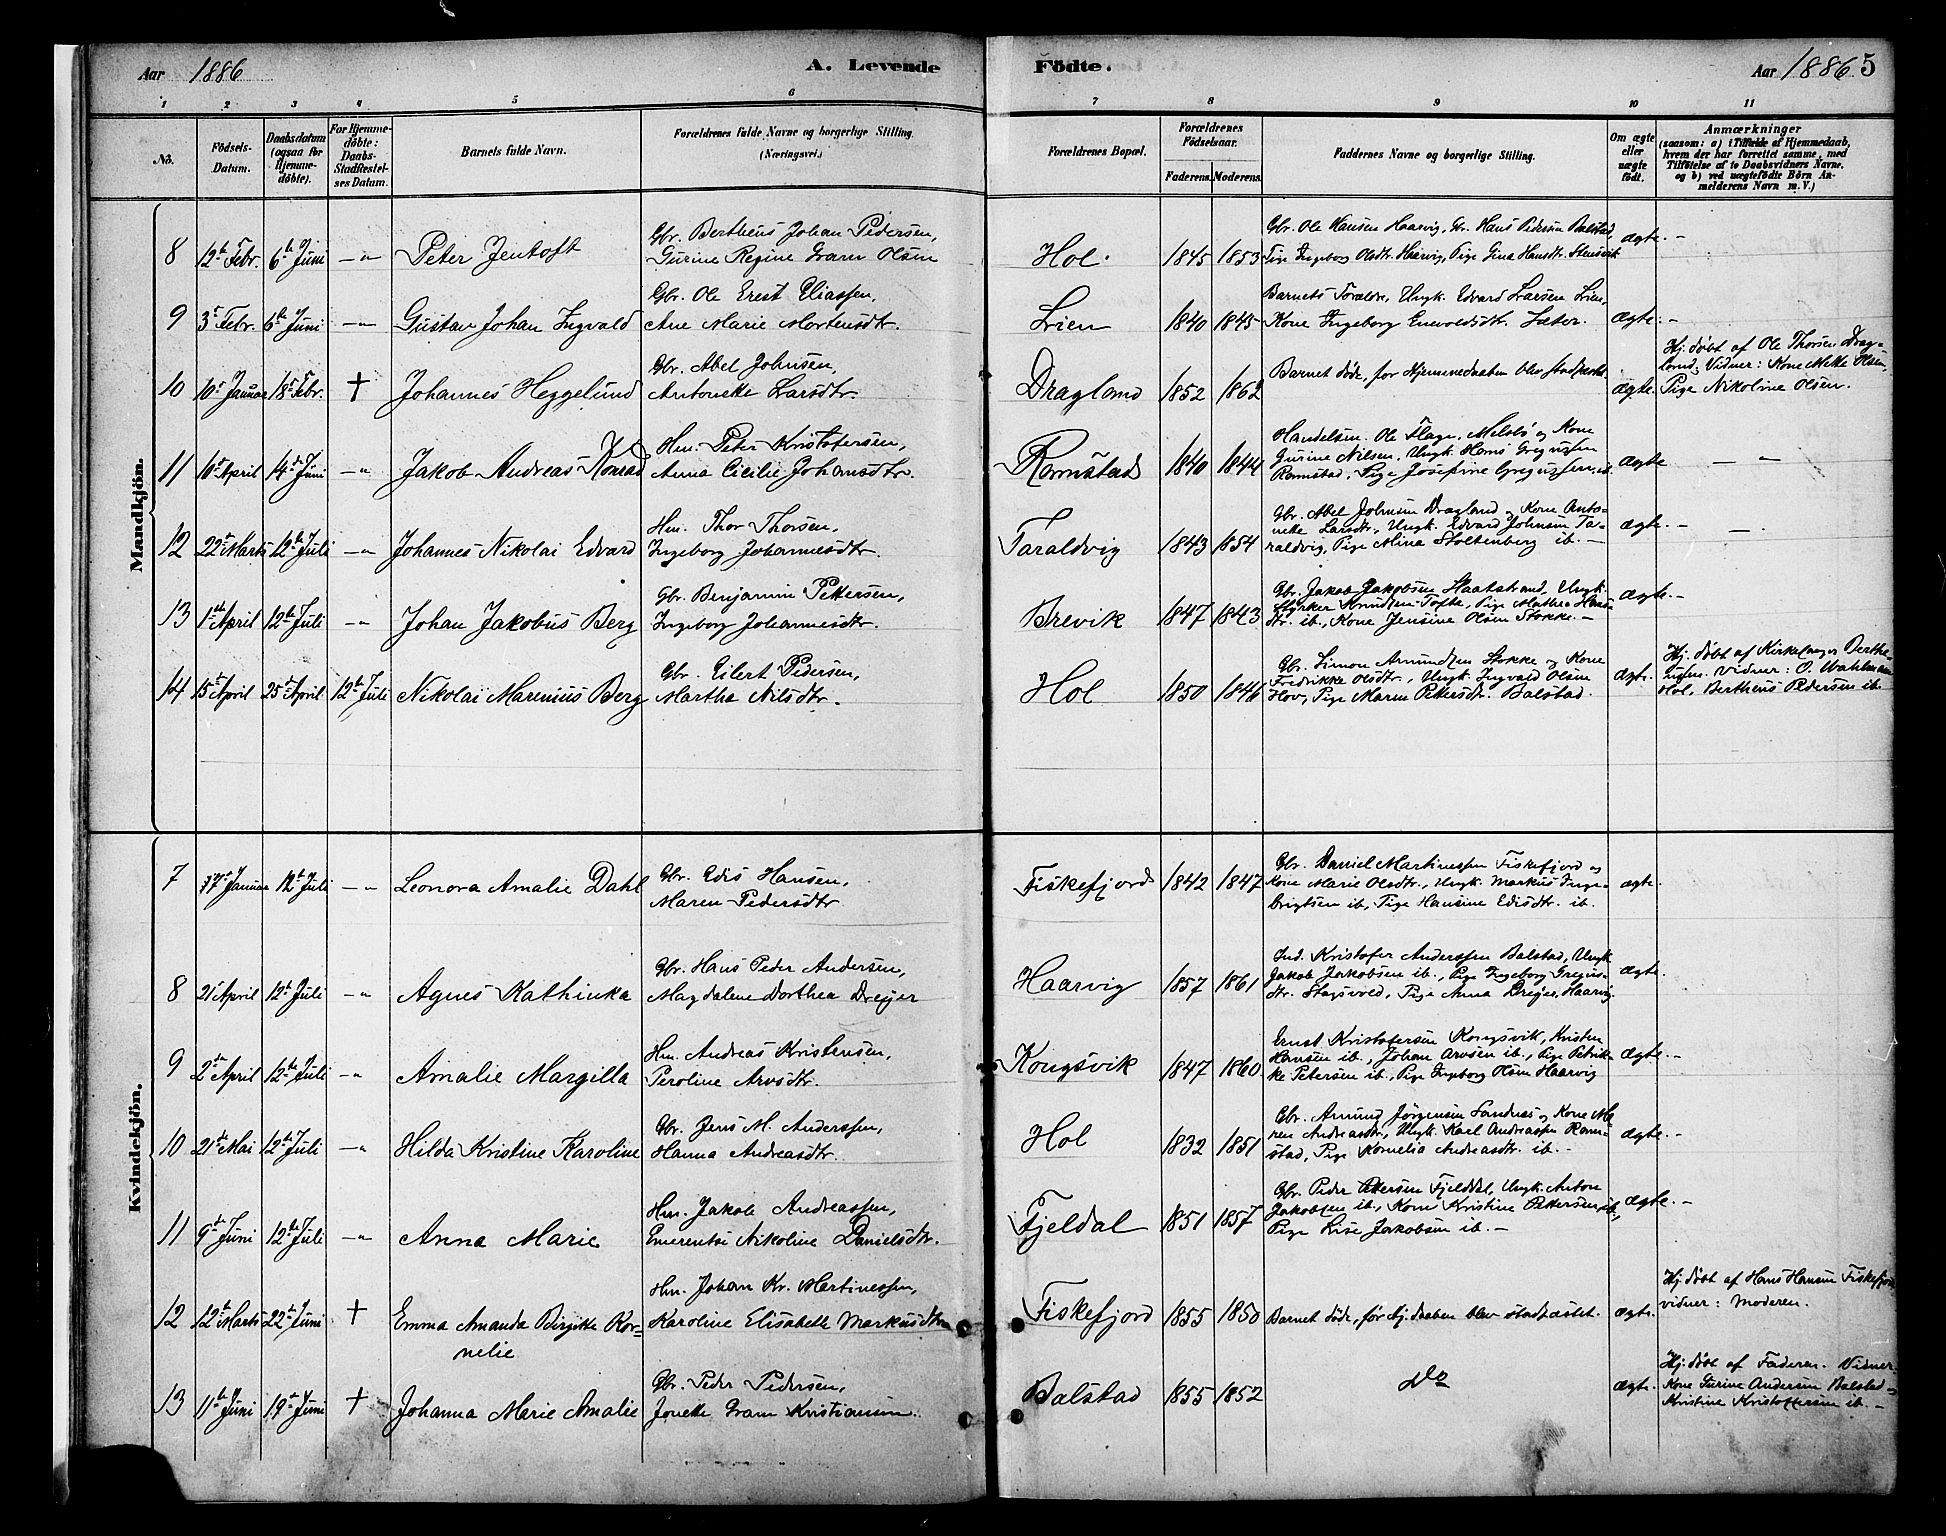 Aar 1886 A. Levende
1 2 3 4 5 6
No. Födsels-Datum. Daabsdatum (ogsaa for Hjemme-döbte). For Hjemme-döbte: Daabs-Stadfæstelses Datum. Barnets fulde Navn. Forældrenes fulde Navne og borgerlige Stilling. (Næringsvei.)
Mandkjön.
8 12te Febr. 6te Juni —"— Peter Jentoft Gbr. Bertheus Johan Pedersen,
Gurine Regine Gram Olsen
9 3de Febr. 6te Juni —"— Gustav Johan Ingvald Gbr. Ole Erest Eliassen,
Ane Marie Mortensdtr.
10 10de Januar 18de Febr. † Johannes Heggelund Gbr. Abel Johnsen,
Antonette Larsdtr.
11 10de April 14de Juni —"— Jakob Andreas Konrad Hm. Peter Kristofersen,
Anna Cicilie Johansdtr.
12 22de Marts 12te Juli —"— Johannes Nikolai Edvard Hm. Thor Thorsen,
Ingeborg Johannesdtr.
13 1ste April 12te Juli —"— Johan Jakobus Berg Gbr. Benjamin Pettersen,
Ingeborg Johannesdtr.
14 15de April 25de April 12te Juli Nikolai Marenius Berg Gbr. Eilert Pedersen,
Martha Nilsdtr.
Kvindekjön.
7 17de Januar 12te Juli —"— Leonora Amalie Dahl Gbr. Edis Hansen,
Maren Pedersdtr.
8 21de April 12te Juli —"— Agnes Kathinka Gbr. Hans Peder Andersen,
Magdalene Dorthea Dreyer
9 2den April 12te Juli —"— Amalie Margilla Hm. Andreas Kristensen,
Peroline Arvsdtr.
10 21de Mai 12te Juli —"— Hilda Kristine Karoline Gbr. Jens M. Anderssen,
Hanna Andreasdtr.
11 9de Juni 12te Juli —"— Anna Marie Hm. Jakob Andreassen,
Emerentse Nikoline Danielsdtr.
12 12te Marts 22de Juni † Emma Amanda Birgitte Kor- Hm. Johan Kr. Martinessen,
nelie Karoline Elisabeth Markusdtr.
13 11te Juni 19de Juni † Johanna Marie Amalie Gbr. Peder Pedersen,
Jonette Gram Kristiansen.
Födte. Aar 1886. 5
7 8 9 10 11
Forældrenes Bopæl. Forældrenes Födselsaar. Faderens. Moderens. Faddernes Navne og borgerlige Stilling. Om ægte eller uægte födt. Anmærkninger (saasom: a) i Tilfælde af Hjemmedaab, hvem der har forrettet samme, med Tilföielse af to Daabsvidners Navne. og b) ved uægtefödte Börn Anmelderens Navn m. V.)
Hol. 1845 1853 Gbr. Ole Hansen Haarvig, Gbr. Hans Pedersen Balstad,
Pige Ingeborg Olsdtr. Haarvig, Pige Gina Hansdtr. Stensvik ægte. —
Lien 1840 1845 Barnets Forældre, Ungk. Edvard Larsen Lien,
Kone Ingeborg Enevoldsdtr. Sæter. ægte. —
Dragland 1852 1862 Barnet döde, för Hjemmedaaben blev stadfæstet. ægte. Hj. döbt af Ole Thorsen Drag-
land, Vidner: Kone Mette Olsen,
Pige Nikoline Olsen.
Ramstad 1840 1844 Handelsm. Ole Flage, Melsbö og Kone
Gurine Nilsen, Ungk. Hans Gregussen
Ramstad, Pige Josefine Gregussen, ib. ægte — " —
Taraldvig 1843 1854 Gbr. Abel Johnsen Dragland og Kone Anto-
nette Larsdtr., Ungk. Edvard Johnsen Ta-
raldvig, Pige Mina Stoltenberg ib. — ægte. — —
Brevik 1847 1843 Gbr. Jakob Jakobsen Staatstrand, Ungk.
Styrker Knudsen Tofte, Pige Mathea Hans-
dtr. ib., Kone Jensine Olsen Stokke. — ægte. —
Hol 1850 1846 Gbr. Simon Amundsen Stokke og Kone
Fredrikke Olsdtr., Ungk. Ingvald Olsen
Hov, Pige Maren Pettersdtr. Balstad. ægte. Hj. döbt af Kirkesanger Berthe-
Vidner: O. Wahlman
Hol, Bertheus Pedersen ib.
Fiskefjord 1842 1847 Gbr. Daniel Martinussen Fiskefjord og
Kone Marie Olsdtr., Ungk. Markus Inge-
brigtsen ib, Pige Hansine Edisdtr. ib. ægte.
Haarvig 1857 1861 Ind. Kristofer Anderssen Balstad, Ungk
Jakob Jakobsen ib., Pige Ingeborg Gregus-
dtr. Stagsvold, Pige Anna Dreyer, Haarvig. ægte.
Kongsvik 1847 1860 Ernst Kristofersen Kongsvik, Kristen
Hansen ib., Johan Arvsen ib., Pige Petrik-
ke Petersen ib., Pige Ingeborg Olsen Haarvig ægte. —
Hol 1832 1851 Gbr. Amund Jörgensen Sandnes og Kone Ma-
ren Andreasdtr., Ungk. Karl Andreassen Ram-
stad, Pige Kornelia Andreasdtr. ib. — ægte. —
Fjeldal 1851 1857 Gbr. Peder Pettersen Fjeldal, Ungk. Anton
Jakobsen ib., Kone Kristine Pettersen ib.,
Pige Lise Jakobsen ib. — ægte. —
Fiskefjord 1855 1850 Barnet döde, för Hj.daaben blev stadfæstet. ægte. Hj. döbt af Hans Hansen Fiskefjord
vidner: Moderen.
Balstad 1855 1852 Do ægte. Hj. döbt af Faderen. Vidner
Kone Gurine Andersen Balstad
Kristine Kristoffersen ib. —